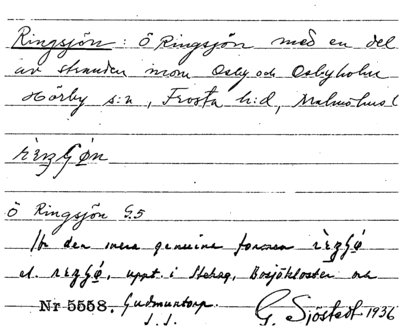 Ringsjön: Ö Ringsjön med en del
av stranden inom Osby och Osbyholm
Hörby s:n, Frosta h:d, Malmöhus l
Ö Ringsjön G.5
den mera genuina formen
el. uppt. i Stehag, Bosjökloster
Nr 5558. Gudmuntorp
G. Sjöstedt 1936